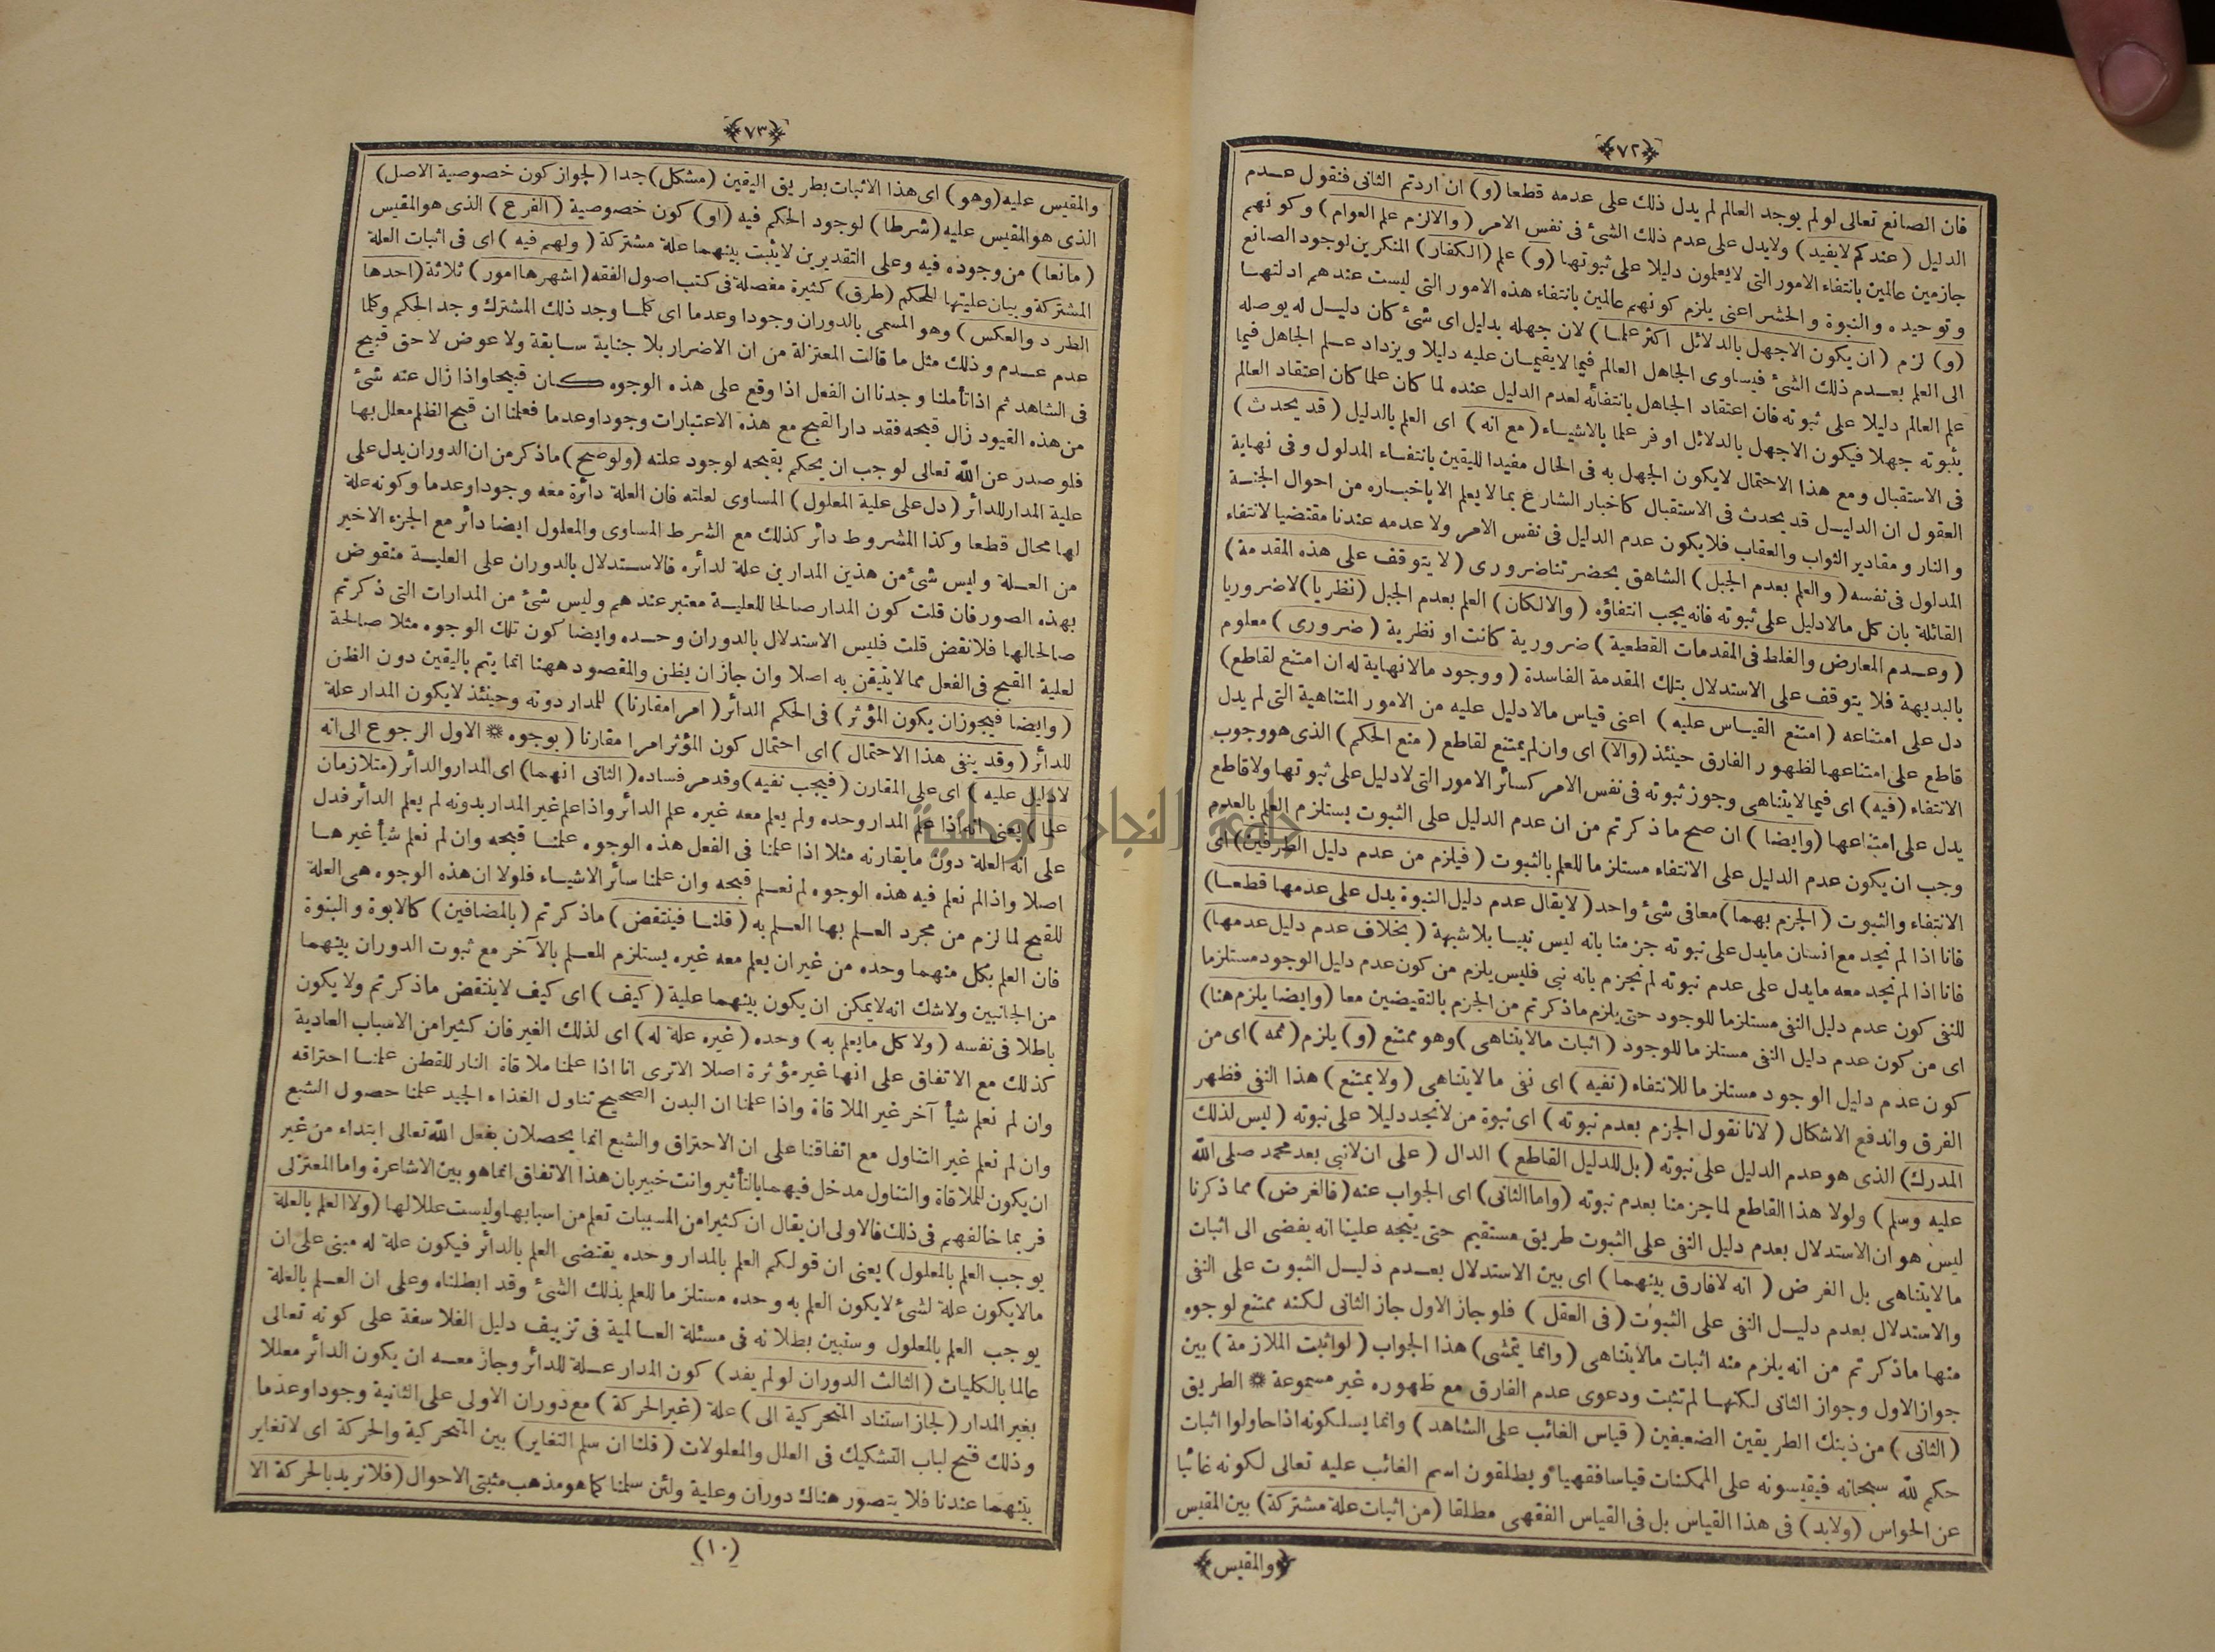 ﴿٧٢﴾
فان الصانع تعالى لو لم يوجد العالم لم يدل ذلك على عدمه قطعا (و) ان اردتم الثانى فنقول عدم
الدليل (عندكم لايفيد) ولايدل على عدم ذلك الشئ فى نفس الامر (والالزم علم العوام) وكونهم
جازمين عالمين بانتفاء الامور التى لايعلمون دليلا على ثبوتها (و) علم (الكفار) المنكرين لوجود الصانع
وتوحيده والنبوة والحشر اعنى يلزم كونهم عالمين بانتفاء هذه الامور التى ليست عندهم ادلتها
(و) لزم (ان يكون الاجهل بالدلائل اكثر علما) لان جهله بدليل اى شئ كان دليل له يوصله
الى العلم بعدم ذلك الشئ فيساوى الجاهل العالم فيما لايقيمان عليه دليلا ويزداد علم الجاهل فيما
علم العالم دليلا على ثبوته فان اعتقاد الجاهل بانتفائه لعدم الدليل عنده لما كان علما كان اعتقاد العالم
بثبوته جهلا فيكون الاجهل بالدلائل اوفر علما بالاشياء (مع انه) اى العلم بالدليل (قد يحدث)
فى الاستقبال ومع هذا الاحتمال لايكون الجهل به فى الحال مفيدا لليقين بانتفاء المدلول وفى نهاية
العقول ان الدليل قد يحدث فى الاستقبال كاخبار الشارع بما لايعلم الا باخباره من احوال الجنة
والنار ومقادير الثواب والعقاب فلايكون عدم الدليل فى نفس الامر ولا عدمه عندنا مقتضيا لانتفاء
المدلول فى نفسه (والعلم بعدم الجبل) الشاهق بحضرتنا ضرورى (لايتوقف على هذه المقدمة)
القائلة بان كل مالادليل على ثبوته فانه يجب انتفاؤه (والالكان) العلم بعدم الجبل (نظريا) لاضروريا
(وعدم المعارض والغلط فى المقدمات القطعية) ضرورية كانت او نظرية (ضرورى) معلوم
بالبديهة فلا يتوقف على الاستدلال بتلك المقدمة الفاسدة (ووجود مالانهاية له ان امتنع لقاطع)
دل على امتناعه (امتنع القياس عليه) اعنى قياس مالادليل عليه من الامور المتناهية التى لم يدل
قاطع على امتناعها لظهور الفارق حينئذ (والا) اى وان لم يمتنع لقاطع (منع الحكم) الذى هو وجوب
الانتفاء (فيه) اى فيما لايتناهى وجوز ثبوته فى نفس الامر كسائر الامور التى لادليل على ثبوتها ولاقاطع
يدل على امتناعها (وايضا) ان صح ماذكرتم من ان عدم الدليل على الثبوت يستلزم العلم بالعدم
وجب ان يكون عدم الدليل على الانتفاء مستلزما للعلم بالثبوت (فيلزم من عدم دليل الطرفين) اى
الانتفاء والثبوت (الجزم بهما) معا فى شئ واحد (لايقال عدم دليل النبوة يدل على عدمها قطعا)
فانا اذا لم نجد مع انسان مايدل على نبوته جزمنا بانه ليس نبيا بلا شبهة (بخلاف عدم دليل عدمها)
فانا اذا لم نجد معه مايدل على عدم نبوته لم نجزم بانه نبى فليس يلزم من كون عدم دليل الوجود مستلزما
للنفى كون عدم دليل النفى مستلزما للوجود حتى يلزم ماذكرتم من الجزم بالنقيضين معا (وايضا يلزم هنا)
اى من كون عدم دليل النفى مستلزما للوجود (اثبات مالايتناهى) وهو ممتنع (و) يلزم (ثمه) اى من
كون عدم دليل الوجود مستلزما للانتفاء (نفيه) اى نفى مالايتناهى (ولايمتنع) هذا النفى فظهر
الفرق واندفع الاشكال (لانا نقول الجزم بعدم نبوته) اى نبوة من لانجد دليلا على نبوته (ليس لذلك
المدرك) الذى هو عدم الدليل على نبوته (بل للدليل القاطع) الدال (على ان لانبى بعد محمد صلى الله
عليه وسلم) ولولا هذا القاطع لما جزمنا بعدم نبوته (واما الثانى) اى الجواب عنه (فالغرض) مما ذكرنا
ليس هو ان الاستدلال بعدم دليل النفى على الثبوت طريق مستقيم حتى يتجه علينا انه يفضى الى اثبات
مالايتناهى بل الغرض (انه لافارق بينهما) اى بين الاستدلال بعدم دليل الثبوت على النفى
والاستدلال بعدم دليل النفى على الثبوت (فى العقل) فلو جاز الاول جاز الثانى لكنه ممتنع لوجوه
منها ماذكرتم من انه يلزم منه اثبات مالايتناهى (وانما يتمشى) هذا الجواب (لو اثبت الملازمة) بين
جواز الاول وجواز الثانى لكنها لم تثبت ودعوى عدم الفارق مع ظهوره غير مسموعة * الطريق
(الثانى) من ذينك الطريقين الضعيفين (قياس الغائب على الشاهد) وانما يسلكونه اذا حاولوا اثبات
حكم لله سبحانه فيقيسونه على الممكنات قياسا فقهيا ويطلقون اسم الغائب عليه تعالى لكونه غائبا
عن الحواس (ولابد) فى هذا القياس بل فى القياس الفقهى مطلقا (من اثبات علة مشتركة) بين المقيس
﴿والمقيس﴾
﴿٧٣﴾
والمقيس عليه (وهو) اى هذا الاثبات بطريق اليقين (مشكل) جدا (لجواز كون خصوصية الاصل)
الذى هو المقيس عليه (شرطا) لوجود الحكم فيه (او) كون خصوصية (الفرع) الذى هو المقيس
(مانعا) من وجوده فيه وعلى التقديرين لايثبت بينهما علة مشتركة (ولهم فيه) اى فى اثبات العلة
المشتركة وبيان عليتها للحكم (طرق) كثيرة مفصلة فى كتب اصول الفقه (اشهرها امور) ثلاثة (احدها
الطرد والعكس) وهو المسمى بالدوران وجودا وعدما اى كلما وجد ذلك المشترك وجد الحكم وكلما
عدم عدم وذلك مثل ما قالت المعتزلة من ان الاضرار بلا جناية سابقة ولا عوض لاحق قبيح
فى الشاهد ثم اذا تأملنا وجدنا ان الفعل اذا وقع على هذه الوجوه كان قبيحا واذا زال عنه شئ
من هذه القيود زال قبحه فقد دار القبح مع هذه الاعتبارات وجودا وعدما فعلمنا ان قبح الظلم معلل بها
فلو صدر عن الله تعالى لوجب ان يحكم بقبحه لوجود علته (ولو صح) ماذكر من ان الدوران يدل على
علية المدار للدائر (دل على علية المعلول) المساوى لعلته فان العلة دائرة معه وجودا وعدما وكونه علة
لها محال قطعا وكذا المشروط دائر كذلك مع الشرط المساوى والمعلول ايضا دائر مع الجزء الاخير
من العلة وليس شئ من هذين المدارين علة لدائره فالاستدلال بالدوران على العلية منقوض
بهذه الصور فان قلت كون المدار صالحا للعلية معتبر عندهم وليس شئ من المدارات التى ذكرتم
صالحا لها فلا نقض قلت فليس الاستدلال بالدوران وحده وايضا كون تلك الوجوه مثلا صالحة
لعلية القبح فى الفعل مما لايتيقن به اصلا وان جاز ان يظن والمقصود ههنا انما يتم باليقين دون الظن
(وايضا فيجوز ان يكون المؤثر) فى الحكم الدائر (امرا مقارنا) للمدار دونه وحينئذ لايكون المدار علة
للدائر (وقد ينفى هذا الاحتمال) اى احتمال كون المؤثر امرا مقارنا (بوجوه * الاول الرجوع الى انه
لادليل عليه) اى على المقارن (فيجب نفيه) وقد مر فساده (الثانى انهما) اى المدار والدائر (متلازمان
علما) يعنى انه اذا علم المدار وحده ولم يعلم معه غيره علم الدائر واذا علم غير المدار بدونه لم يعلم الدائر فدل
على انه العلة دون مايقارنه مثلا اذا علمنا فى الفعل هذه الوجوه علمنا قبحه وان لم نعلم شيأ غيرها
اصلا واذا لم نعلم فيه هذه الوجوه لم نعلم قبحه وان علمنا سائر الاشياء فلولا ان هذه الوجوه هى العلة
للقبح لما لزم من مجرد العلم بها العلم به (قلنا فينتقض) ماذكرتم (بالمضافين) كالابوة والبنوة
فان العلم بكل منهما وحده من غير ان يعلم معه غيره يستلزم العلم بالآخر مع ثبوت الدوران بينهما
من الجانبين ولاشك انه لايمكن ان يكون بينهما علية (كيف) اى كيف لاينتقض ماذكرتم ولايكون
باطلا فى نفسه (ولا كل مايعلم به) وحده (غيره علة له) اى لذلك الغير فان كثيرا من الاسباب العادية
كذلك مع الاتفاق على انها غير مؤثرة اصلا الاترى انا اذا علمنا ملاقاة النار للقطن علمنا احتراقه
وان لم نعلم شيأ آخر غير الملاقاة واذا علمنا ان البدن الصحيح تناول الغذاء الجيد علمنا حصول الشبع
وان لم نعلم غير التناول مع اتفاقنا على ان الاحتراق والشبع انما يحصلان بفعل الله تعالى ابتداء من غير
ان يكون للملاقاة والتناول مدخل فيهما بالتأثير وانت خبير بان هذا الاتفاق انما هو بين الاشاعرة واما المعتزلى
فربما خالفهم فى ذلك فالاولى ان يقال ان كثيرا من المسببات تعلم من اسبابها وليست عللا لها (ولا العلم بالعلة
يوجب العلم بالمعلول) يعنى ان قولكم العلم بالمدار وحده يقتضى العلم بالدائر فيكون علة له مبنى على ان
مالايكون علة لشئ لايكون العلم به وحده مستلزما للعلم بذلك الشئ وقد ابطلناه وعلى ان العلم بالعلة
يوجب العلم بالمعلول وستبين بطلانه فى مسئلة العالمية فى تزييف دليل الفلاسفة على كونه تعالى
عالما بالكليات (الثالث الدوران لو لم يفد) كون المدار علة للدائر وجاز معه ان يكون الدائر معللا
بغير المدار (لجاز استناد المتحركية الى) علة (غير الحركة) مع دوران الاولى على الثانية وجودا وعدما
وذلك فتح لباب التشكيك فى العلل والمعلولات (قلنا ان سلم التغاير) بين المتحركية والحركة اى لاتغاير
بينهما عندنا فلا يتصور هناك دوران وعلية ولئن سلمنا كما هو مذهب مثبتى الاحوال (فلا نريد بالحركة الا
(١٠)
جامعة النجاح الوطنية